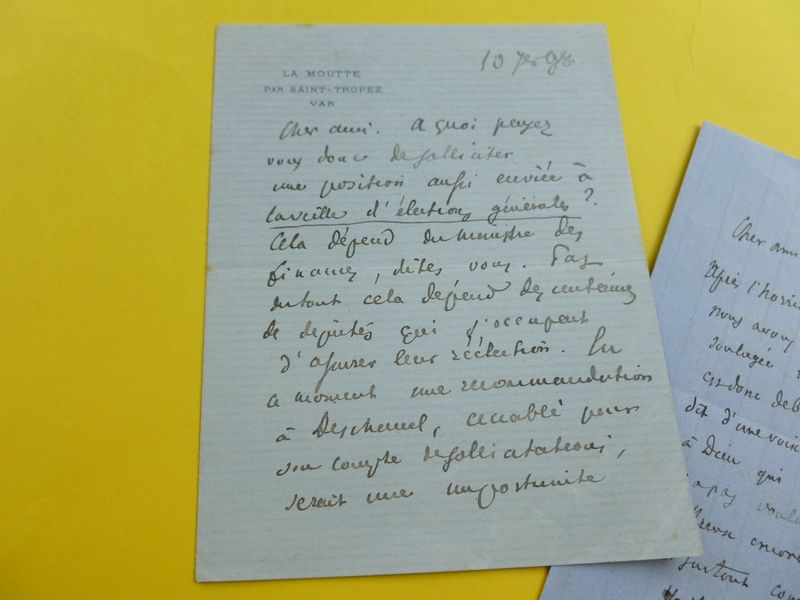 LA MOUTTE
PAR SAINT-TROPEZ
VAR
10 7er 98.
Cher ami. A quoi pensez
vous donc de solliciter
une position aussi enviée à
la veille d'élections générales ?
Cela dépend du ministre des
finances, dites vous. Pas
du tout cela dépend des centaines
de députés qui s'occupent
d'assurer leur réélection. En
ce moment une recommandation
à Deschanel, accablé pour
son compte de sollicitations,
serait une importunité
Cher ami
Après l'horri
nous avons
soulagée
est donc deb
dit d'une voix
à Dieu qui
pas
encore
surtout com